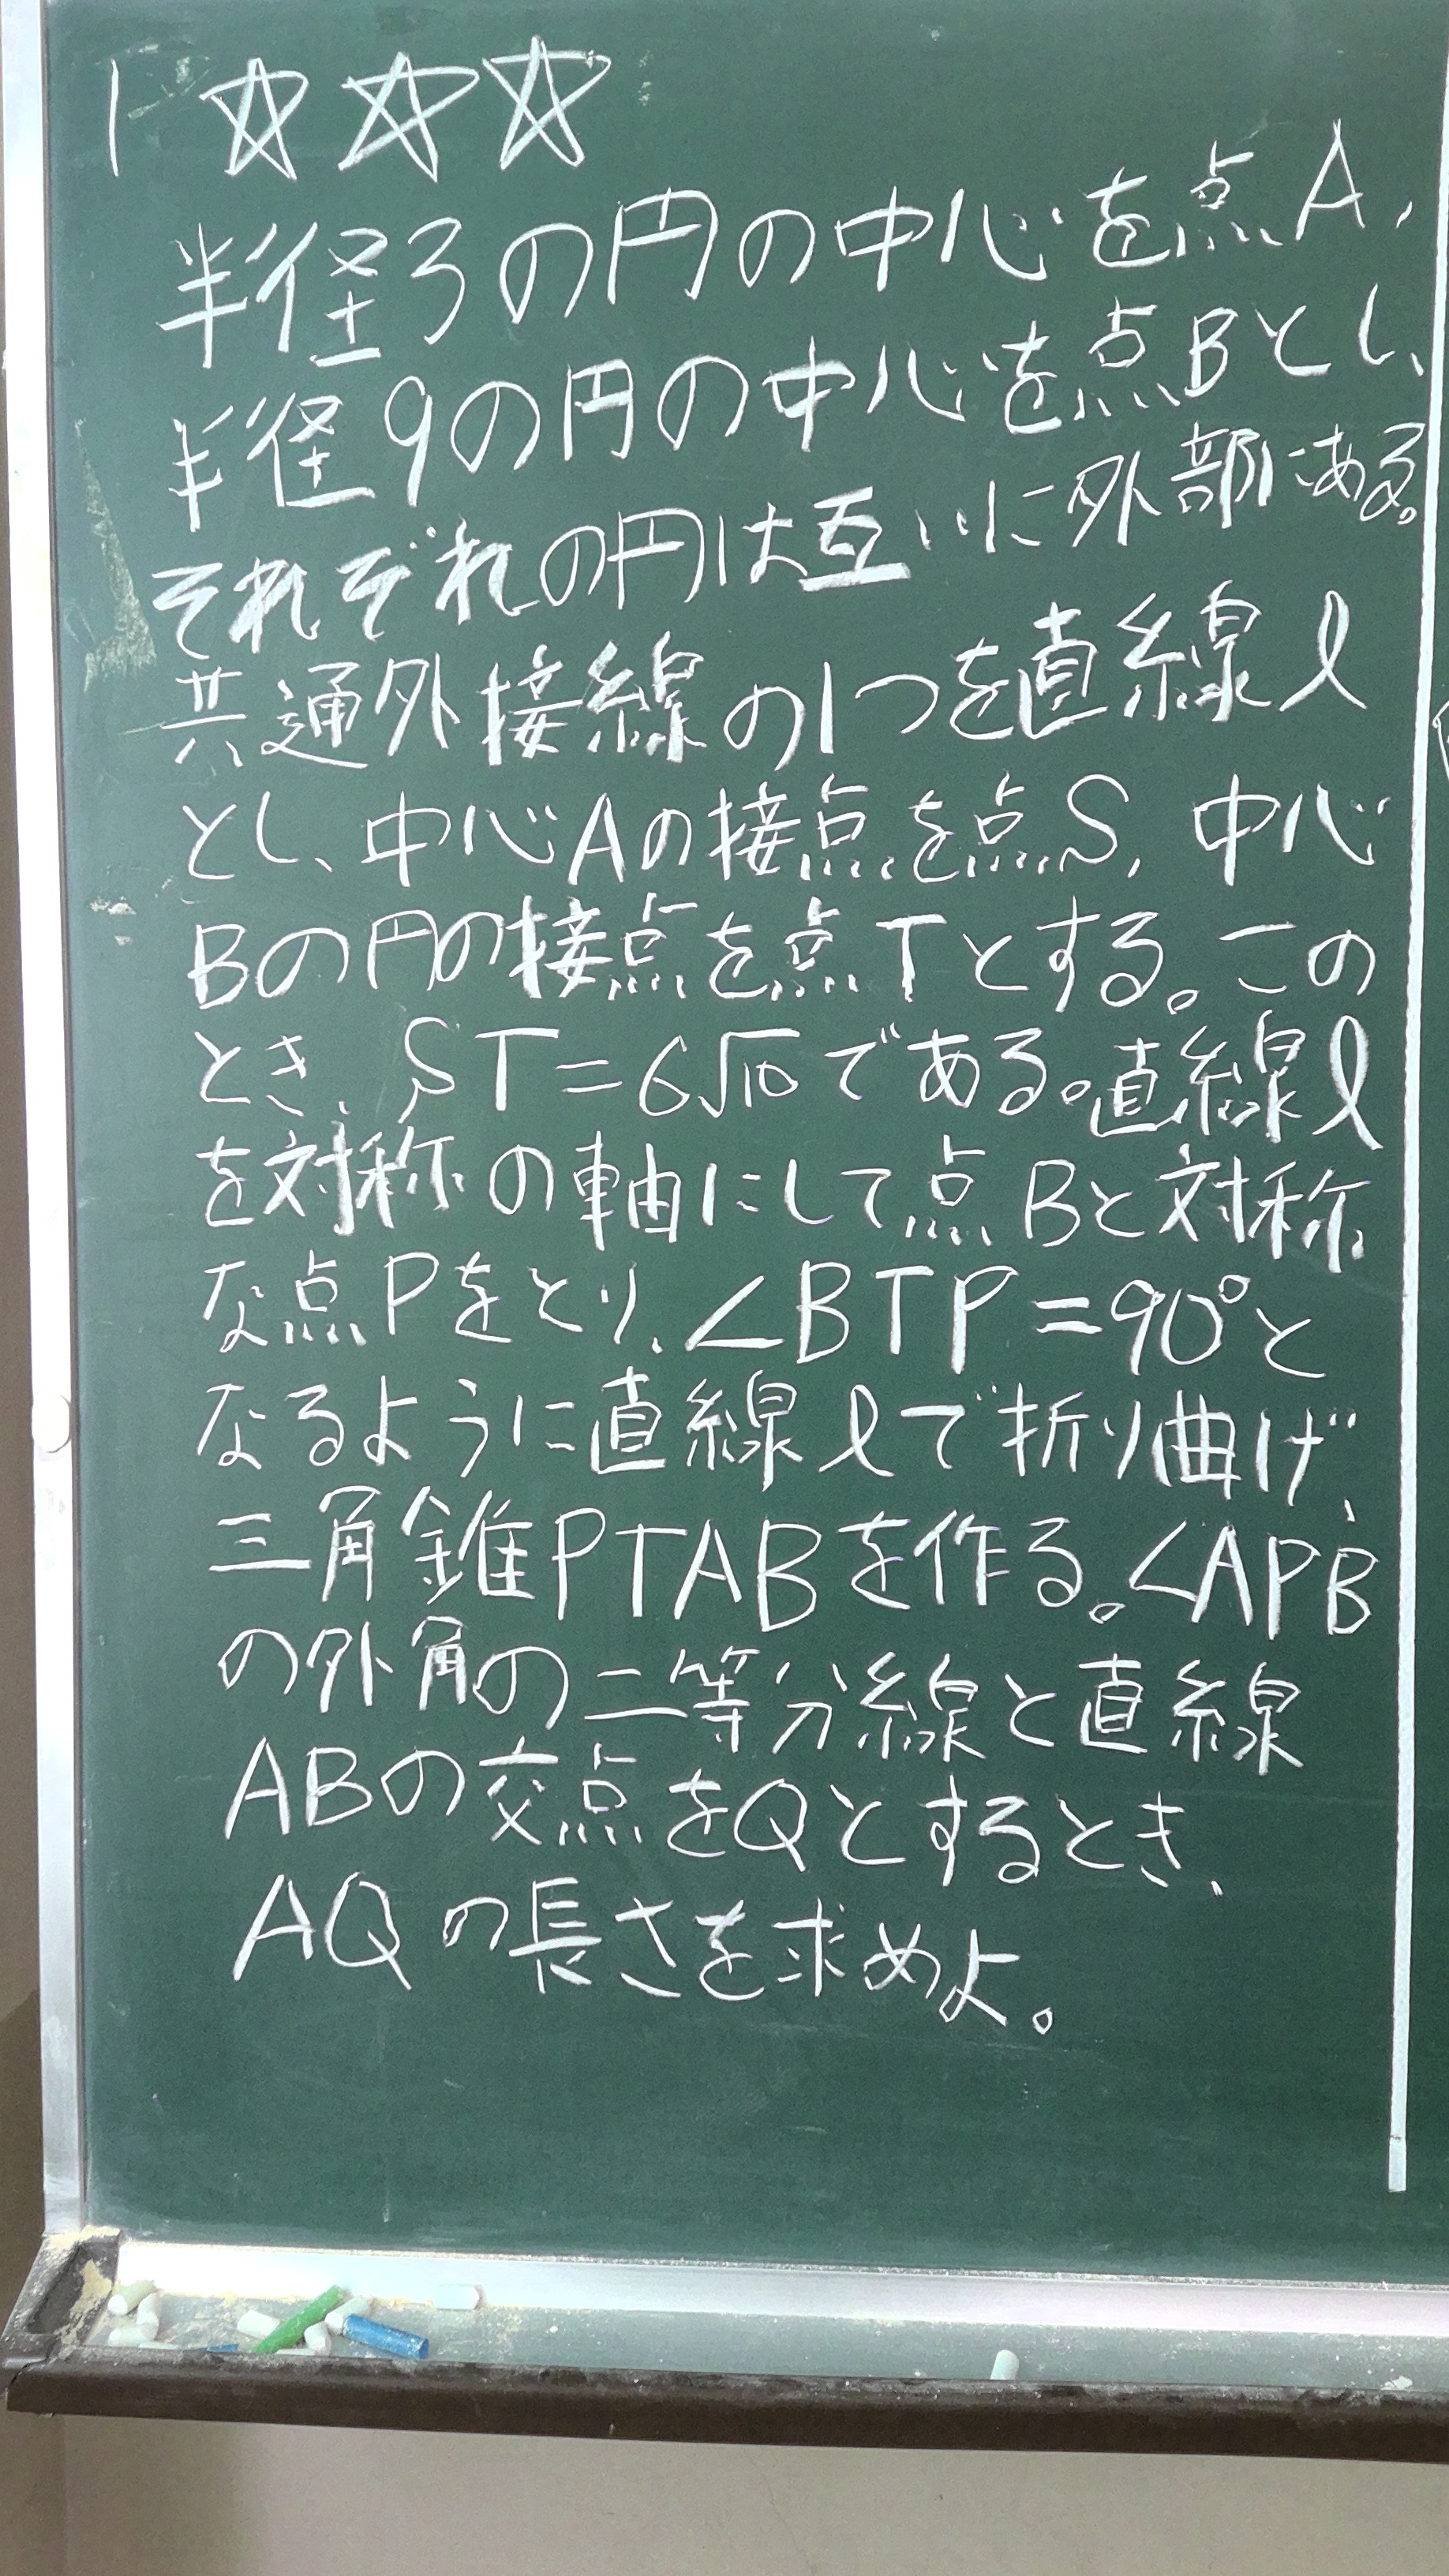 1 ☆☆☆
半径3の円の中心を点A,
半径9の円の中心を点Bとし、
それぞれの円は互いに外部にある。
共通外接線の1つを直線ℓ
とし、中心Aの接点を点S, 中心
Bの円の接点を点Tとする。この
とき、ST=6√10である。直線ℓ
を対称の軸にして点Bと対称
な点Pをとり、∠BTP=90°と
なるように直線ℓで折り曲げ、
三角錐PTABを作る。∠APB
の外角の二等分線と直線
ABの交点をQとするとき、
AQの長さを求めよ。